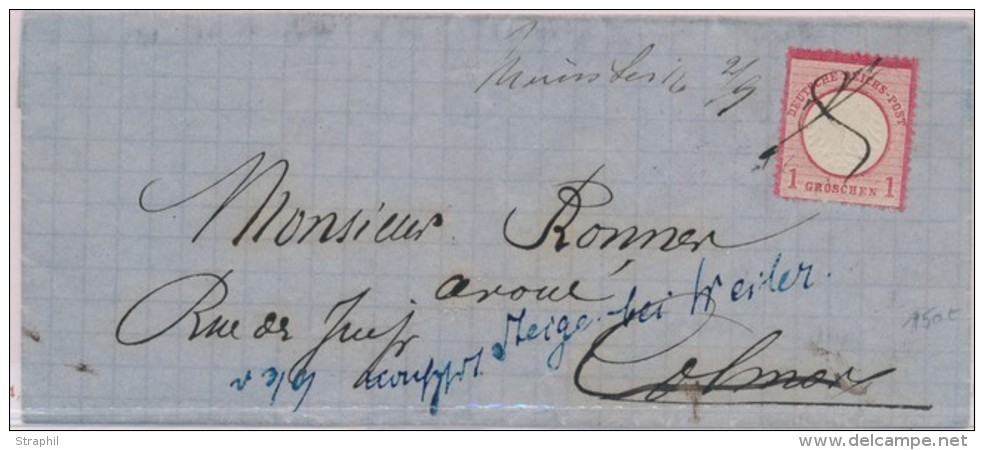 Münster 2/9
DEUTSCHE REICHS-POST
1 GROSCHEN 1
Monsieur Ronner
avoué
Rue des Juifs
Steige bei Weiler.
Colmar
150€
Straphil
www.delcampe.net